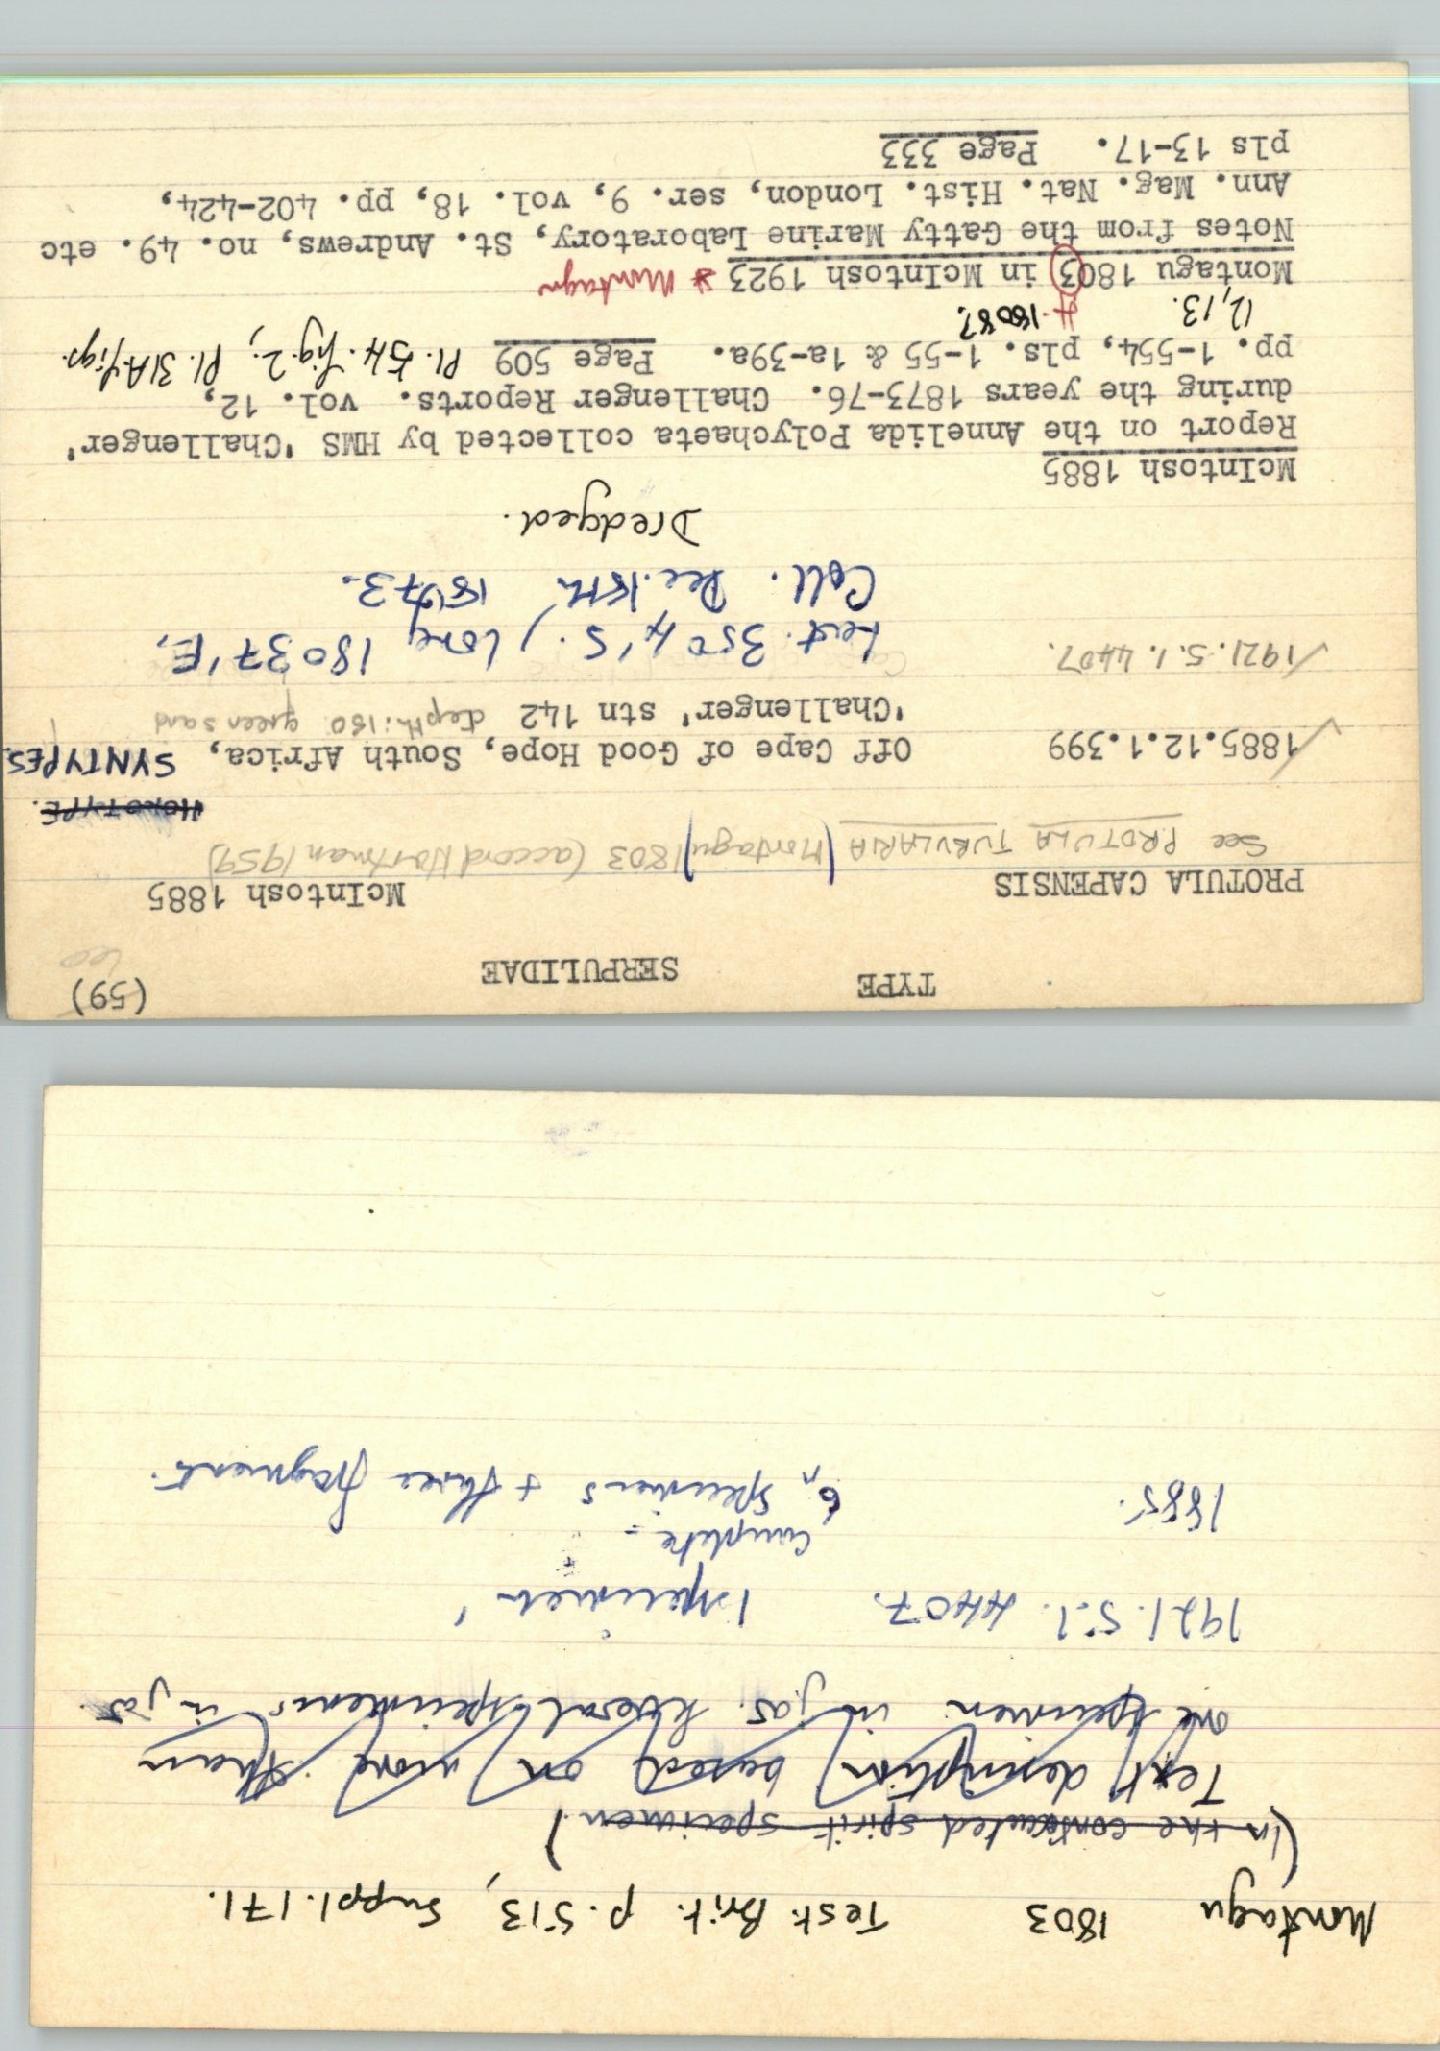 TYPE SERPULIDAE (59)
Leo
PROTULA CAPENSIS McIntosh 1885
See PROTULA TUBULARIA (Montagu) 1803 (accord Hartman 1959)
HOLOTYPE.
1885.12.1.399 Off Cape of Good Hope, South Africa, SYNTYPES.
'Challenger' stn 142 depth: 150 green sand
1921.5.1.4407. Lat. 35° 4'S., Long 18°37'E,
Coll. Dec. 18th 1873.
Dredged.
McIntosh 1885
Report on the Annelida Polychaeta collected by HMS 'Challenger'
during the years 1873-76. Challenger Reports. vol. 12,
pp. 1-554, pls. 1-55 & 1a-39a. Page 509 Pl. 54. fig. 2; Pl. 31A. figs.
12, 13.
Montagu 1803 in McIntosh 1923 * Montagu
Notes from the Gatty Marine Laboratory, St. Andrews, no. 49. etc
Ann. Mag. Nat. Hist. London, ser. 9, vol. 18, pp. 402-424,
pls 13-17. Page 333
Montagu 1803 Test. Brit. p. 513, Suppl. 171.
(In the contracted spirit specimen)
Text description based on more than
one specimen in jar. Several specimens in jar.
1921.5.1.4407. 1 specimen
complete
1885. 6 specimens + three fragments.